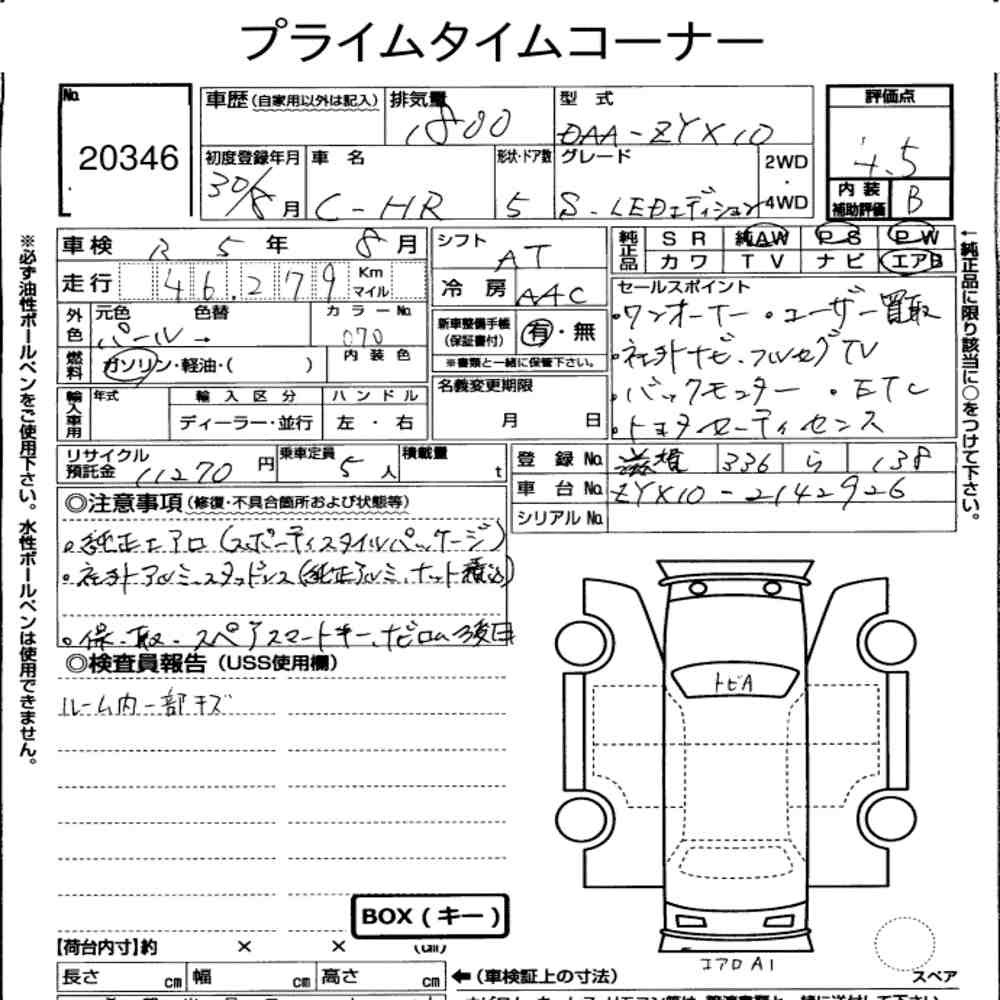 プライムタイムコーナー
No.
20346
車歴(自家用以外は記入)
排気量
1800
型 式
DAA-ZYX10
評価点
4.5
内装補助評価
B
初度登録年月
30/8月
車 名
C-HR
形状・ドア数
5
グレード
S-LEDエディション
2WD・4WD
車検 R5年 8月
走行 46.279 Km マイル
外色
元色 色替
パール→
カラーNo.
070
燃料
ガソリン・軽油・( )
内装色
輸入車用
年式
輸入区分
ディーラー・並行
ハンドル
左・右
シフト
AT
冷房
AAC
新車整備手帳(保証書付)
有・無
※書類と一緒に保管下さい。
名義変更期限
月 日
純正品
SR 純AW PS PW
カワ TV ナビ エアB
セールスポイント
・ワンオーナー・ユーザー買取
・社外ナビ・フルセグTV
・バックモニター ・ETC
・トヨタセーフティセンス
リサイクル預託金
11270円
乗車定員
5人
積載量
t
登録No. 滋賀 336 ら 138
車台No. ZYX10-2142926
シリアルNo.
◎注意事項(修復・不具合箇所および状態等)
・純正エアロ(スポーティスタイルパッケージ)
・社外アルミ・スタッドレス(純正アルミ、ナット積込)
・保・取・スペアスマートキー、ナビロム後日
◎検査員報告(USS使用欄)
ルーム内一部キズ
トビA
BOX(キー)
エアロA1
スペア
【荷台内寸】約 × × (cm)
長さ cm 幅 cm 高さ cm
←(車検証上の寸法)
※必ず油性ボールペンをご使用下さい。水性ボールペンは使用できません。
←純正品に限り該当に○をつけて下さい。